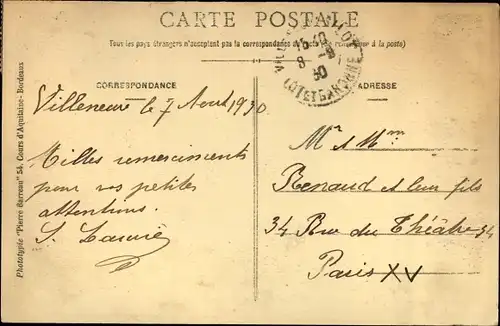 CARTE POSTALE
Tous les pays étrangers n'acceptent pas la correspondance au recto (se renseigner à la poste)
CORRESPONDANCE
ADRESSE
LOT ET GARONNE
15 40
8 -8
30
Villeneuve le 7 Aout 1930
Milles remerciments
pour vos petites
attentions.
Mr et Mme
Renaud et leur fils
34 Rue du Théâtre 34
Paris XV
Phototypie "Pierre Barreau" 54, Cours d'Aquitaine - Bordeaux